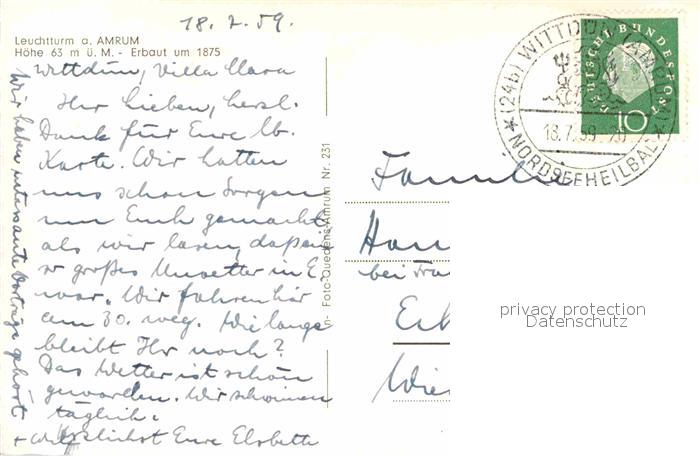 18.7.59.
Leuchtturm a. AMRUM
Höhe 63 m ü. M. - Erbaut um 1875
Wittdün, Villa Clara
Ihr Lieben, herzl.
Dank für Eure lb.
Karte. Wir hatten
uns schon Sorgen
um Euch gemacht
als wir lasen, daß ein
so großes Unwetter in E.
war. Wir fahren hier
am 30. weg. Wie lange
bleibt Ihr noch?
Das Wetter ist schön
geworden. Wir schwimmen
täglich.
Herzlichst Eure Elsbeth
+ Willi
Wir haben interessante Vorträge gehört
n- Foto-Quedens-Amrum Nr. 231
(24b) WITTDÜN (AMRUM)
18.7.59.-20
NORDSEEHEILBAD
DEUTSCHE BUNDESPOST
10
Familie
Han
bei
Wie
privacy protection
Datenschutz